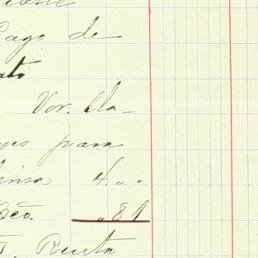 Pago de
ato
Vor. Cla-
yes para
ensa 4 " "
Deo. " 81
T. Renta